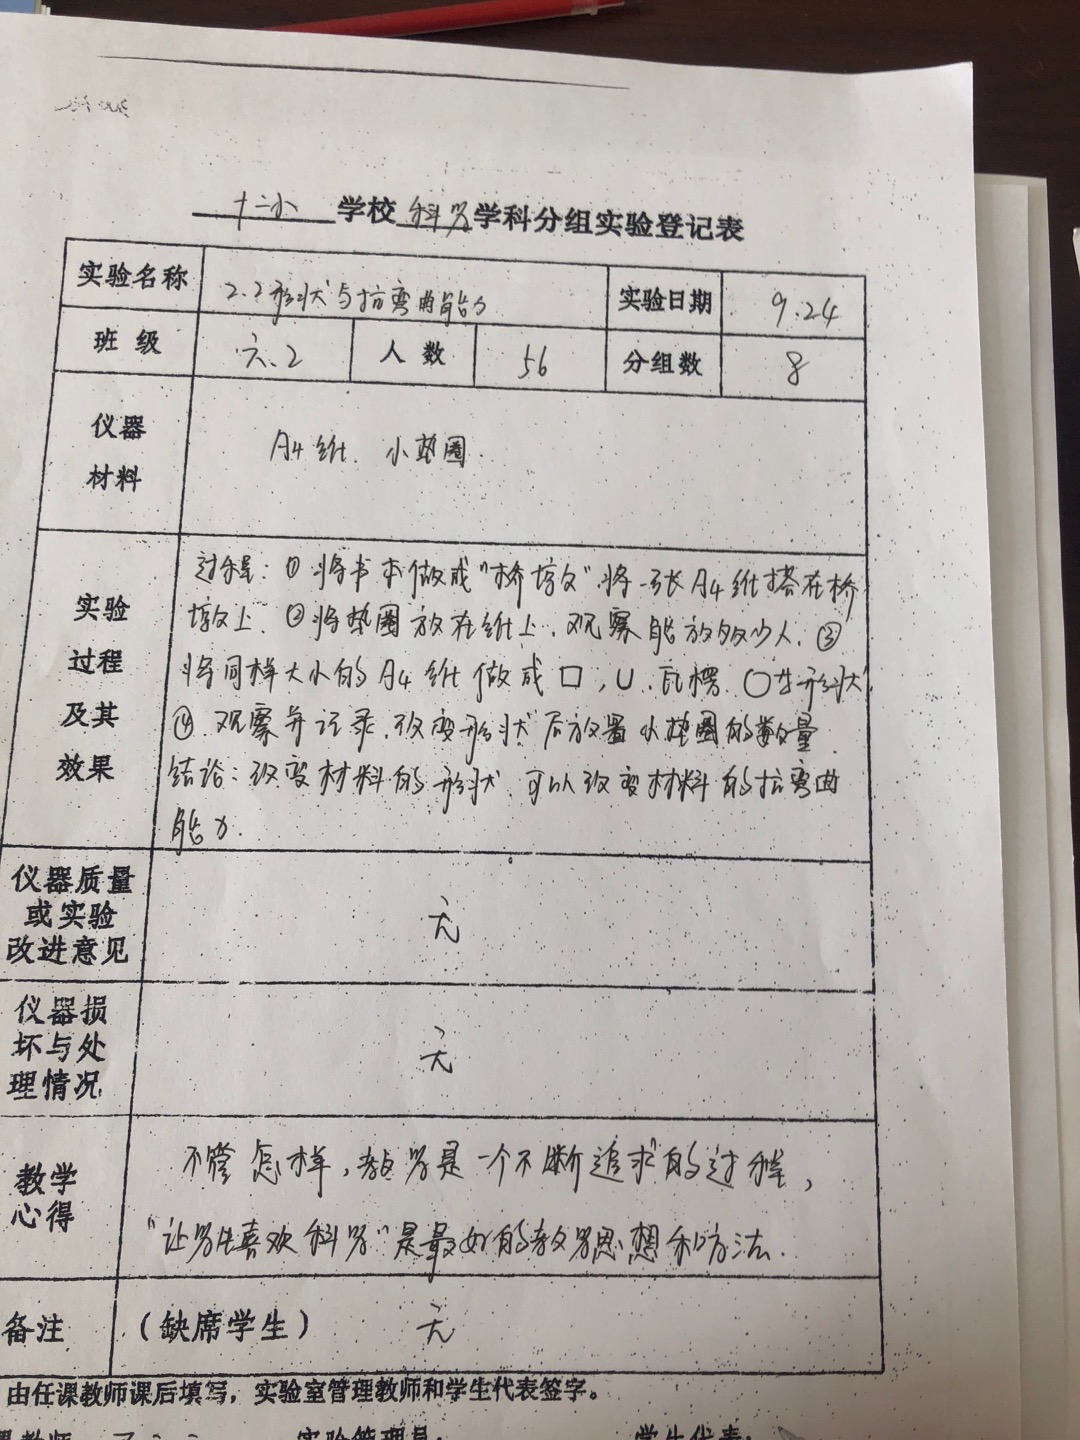 十二小 学校 科学 学科分组实验登记表
实验名称 2.2形状与抗弯曲能力 实验日期 9.24
班 级 六.2 人 数 56 分组数 8
仪器
材料
A4纸. 小垫圈.
实验
过程
及其
效果
过程: ①将书本做成"桥墩".将一张A4纸搭在桥
墩上. ②将垫圈放在纸上.观察能放多少人.③
将同样大小的A4纸做成□,U.瓦楞.○等形状
④.观察并记录.改变形状后放置小垫圈的数量.
结论:改变材料的形状.可以改变材料的抗弯曲
能力.
仪器质量
或实验
改进意见
无
仪器损
坏与处
理情况
无
教学
心得
不管怎样,教学是一个不断追求的过程,
"让学生喜欢科学"是最好的教学思想和方法.
备注 (缺席学生) 无
由任课教师课后填写,实验室管理教师和学生代表签字。
课教师 实验管理员: 学生代表: